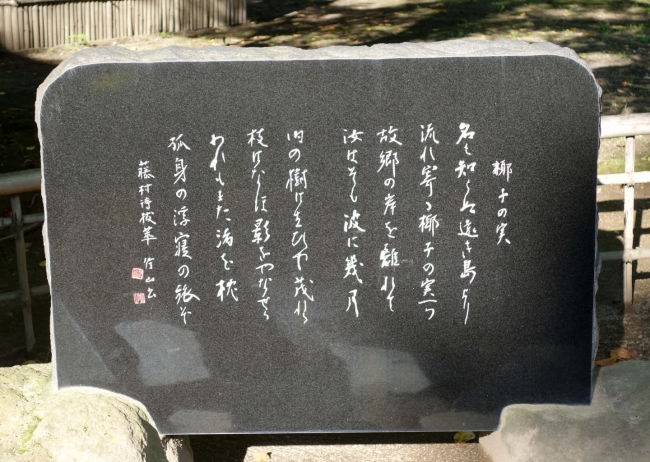 椰子の実
名も知らぬ遠き島より
流れ寄る椰子の実一つ
故郷の岸を離れて
汝はそも波に幾月
旧の樹は生ひや茂れる
枝はなほ影をやなせる
われもまた渚を枕
孤身の浮寝の旅ぞ
藤村詩抜萃 竹山書